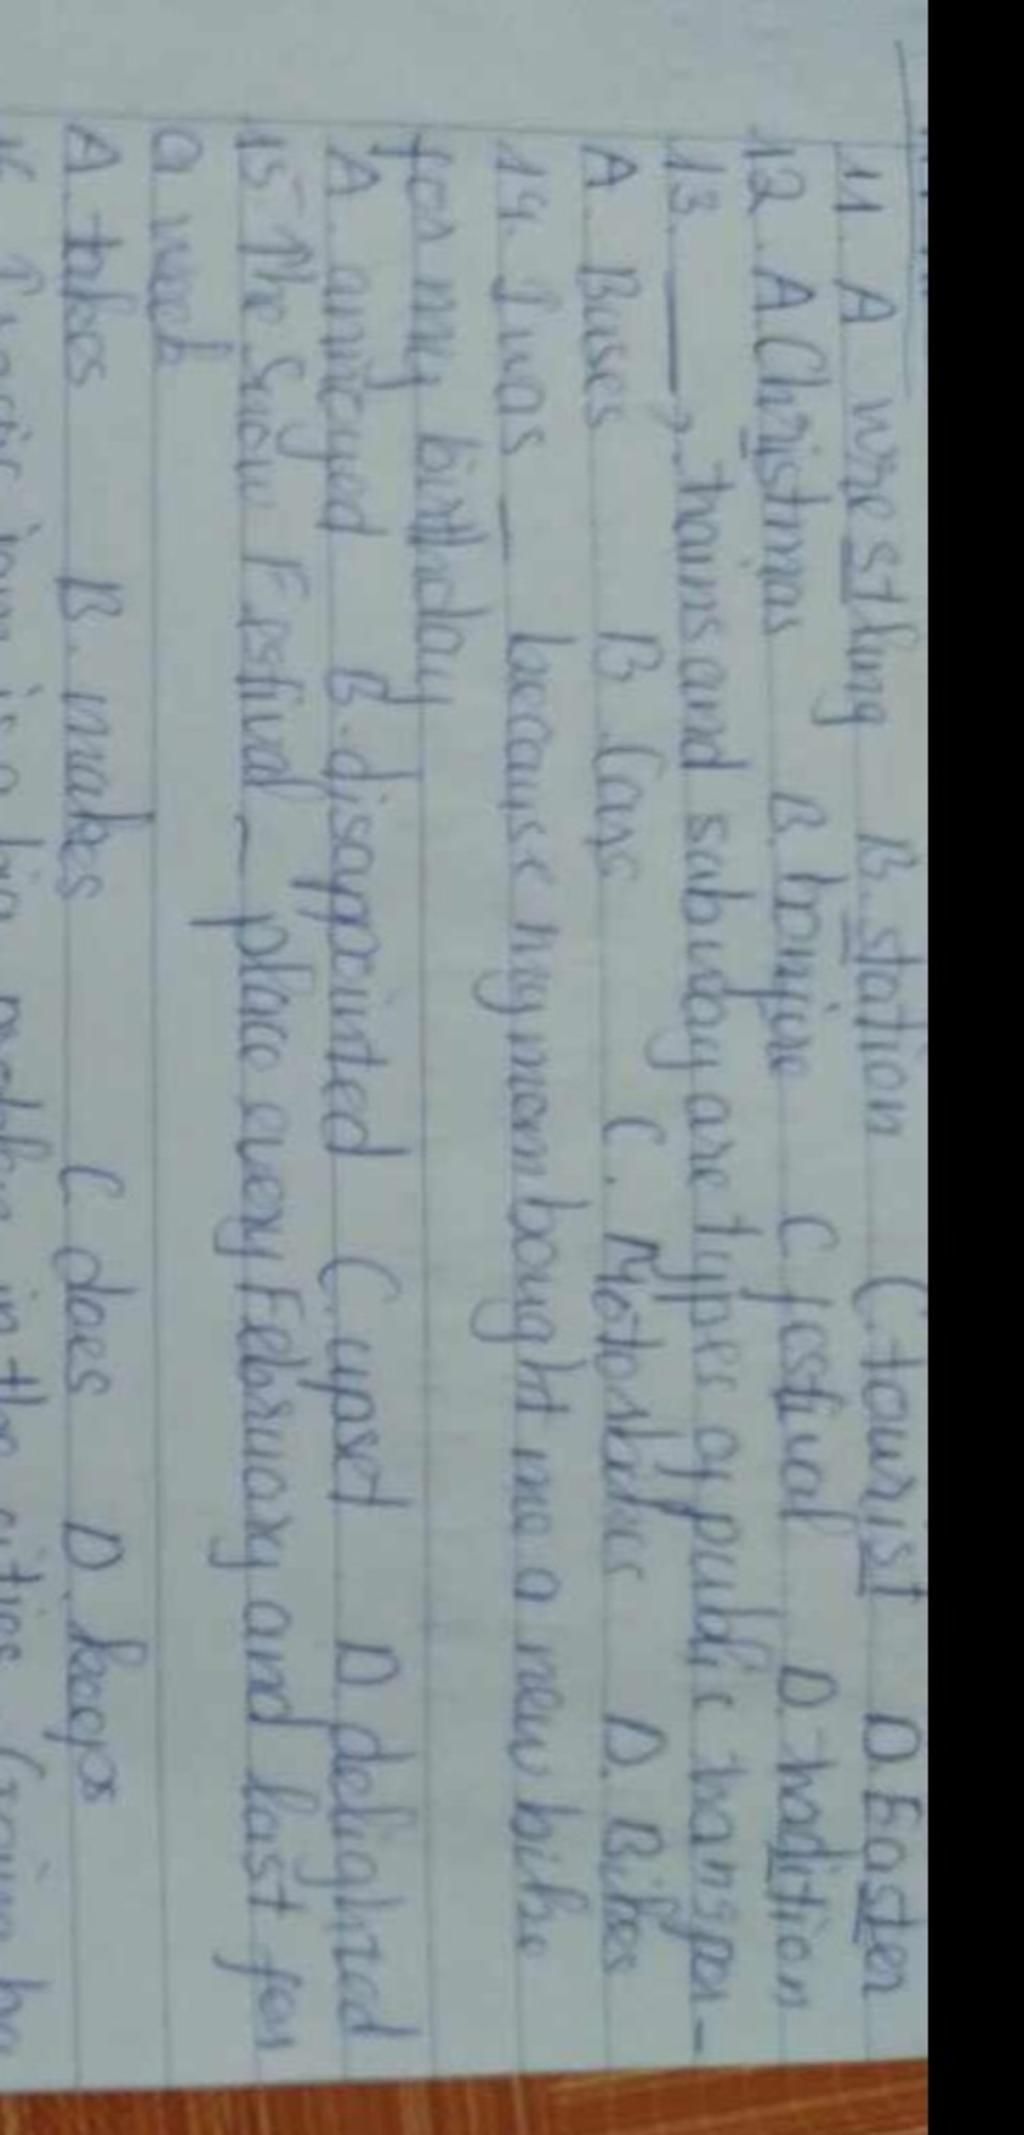 11. A wrestling B. station C. tourist D Easter
12. A Christmas B. bonfire C festival D. tradition
13. ____, trains and subway are types of public transpor-
A. Buses B. Cars C. Motorbikes D. Bikes
14. I was _ because my mom bought me a new bike
for my birthday
A. annoyed B. disappointed C. upset D. delighted
15 The Snow Festival _ place every February and last for
a week
A. takes B. makes C does D. keeps
in the cities